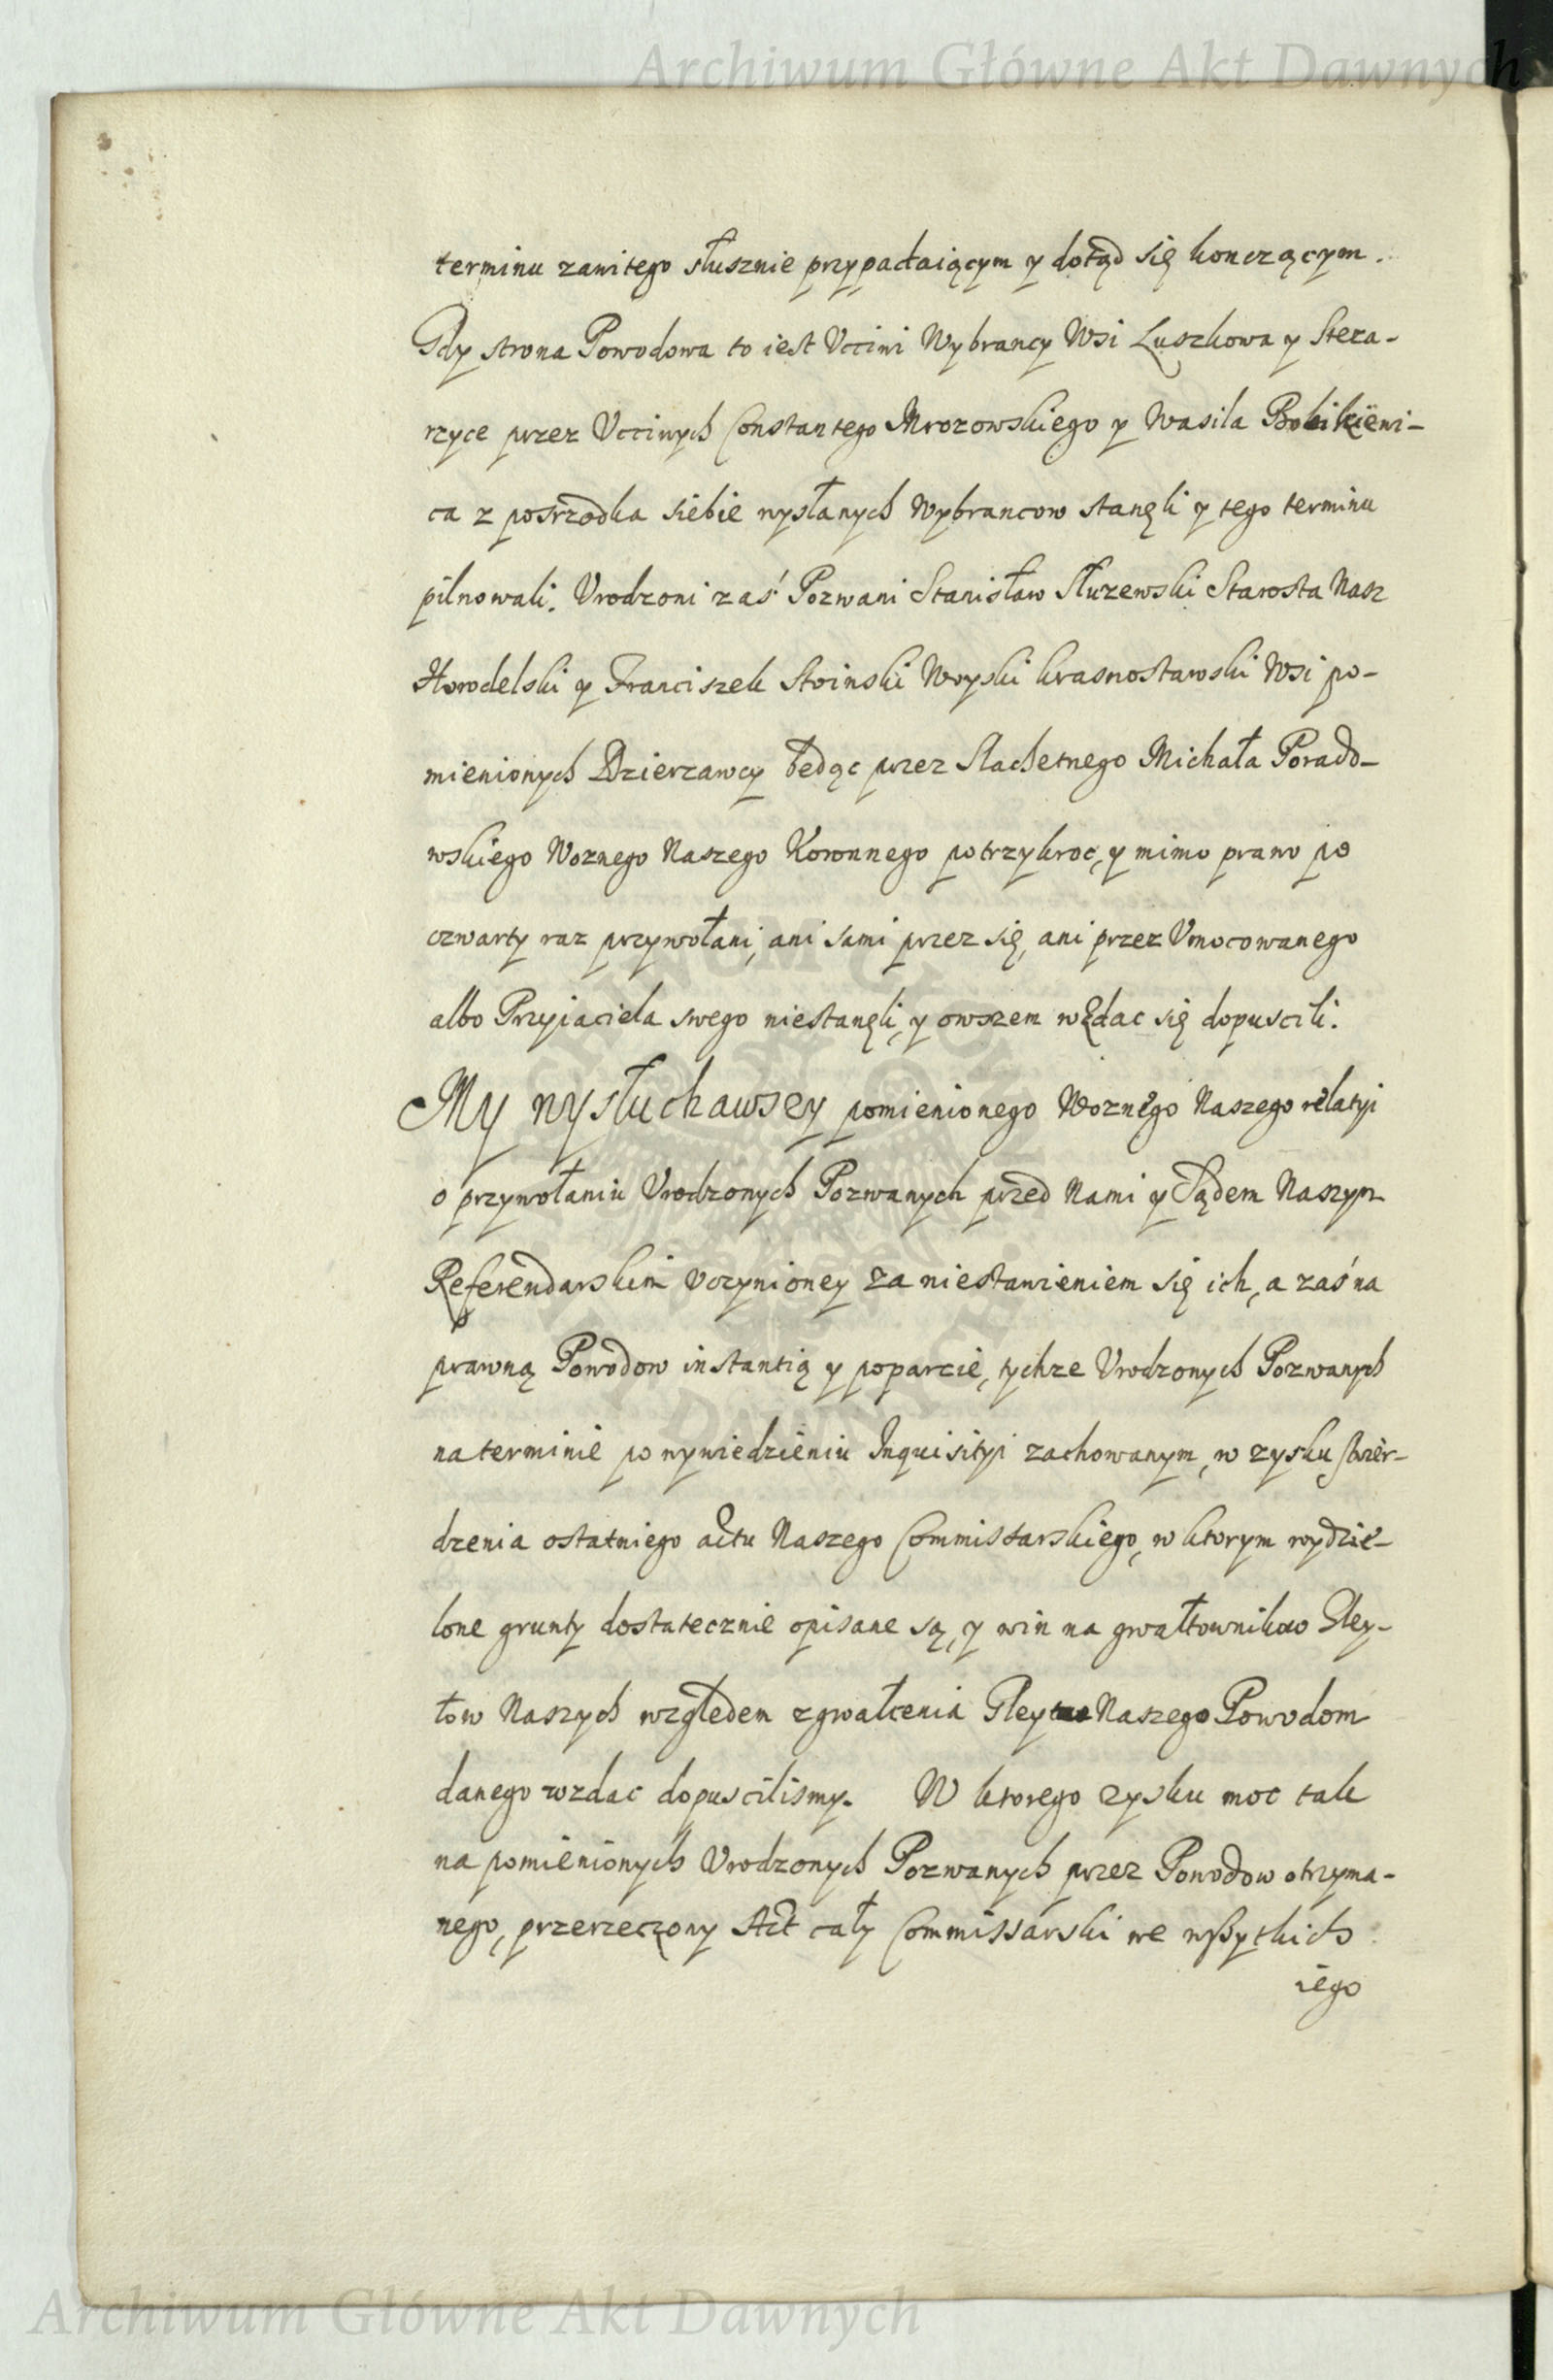 Archiwum Główne Akt Dawnych
terminu zawitego słusznie przypadaiącym y dotąd się konczącym.
Gdy strona Powodowa to iest Vcciwi Wybrancy Wsi Luszkowa y Steza-
rzyce przez Vcciwych Constantego Mrozowskiego y Wasila
ca z posrzodka siebie wysłanych Wybrancow stanęli y tego terminu
pilnowali. Vrodzoni zaś Pozwani Stanisław Służewski Starosta Nasz
Horodelski y Franciszek Stoinski Woyski krasnostawski Wsi po-
mienionych Dzierzawcy będąc przez Slachetnego Michała Porado-
wskiego Woznego Naszego Koronnego potrzykroc, y mimo prawo po
czwarty raz przywołani, ani sami przez się, ani przez Vmocowanego
albo Przyiaciela swego niestanęli, y owszem wzdac się dopuscili.
My wysłuchawszy pomienionego Woznego Naszego relatyi
o przywołaniu Vrodzonych Pozwanych przed Nami y Sądem Naszym
Referendarskim vczynioney za niestawieniem się ich, a zaś na
prawną Powodow instantią y poparcie, tychze Vrodzonych Pozwanych
na terminie po wywiedzieniu Inquisityi zachowanym, w zysku stwier-
dzenia ostatniego actu Naszego Commissarskiego, w ktorym wydzie-
lone grunty dostatecznie opisane są, y win na gwałtownikow Gley-
tow Naszych względem zgwałcenia Gleytu Naszego Powodom
danego wzdac dopuscilismy. W ktorego zysku moc tak
na pomienionych Vrodzonych Pozwanych przez Powodow otrzyma-
nego, przerzeczony Act cały Commissarski we wszytkich
iego
Archiwum Główne Akt Dawnych